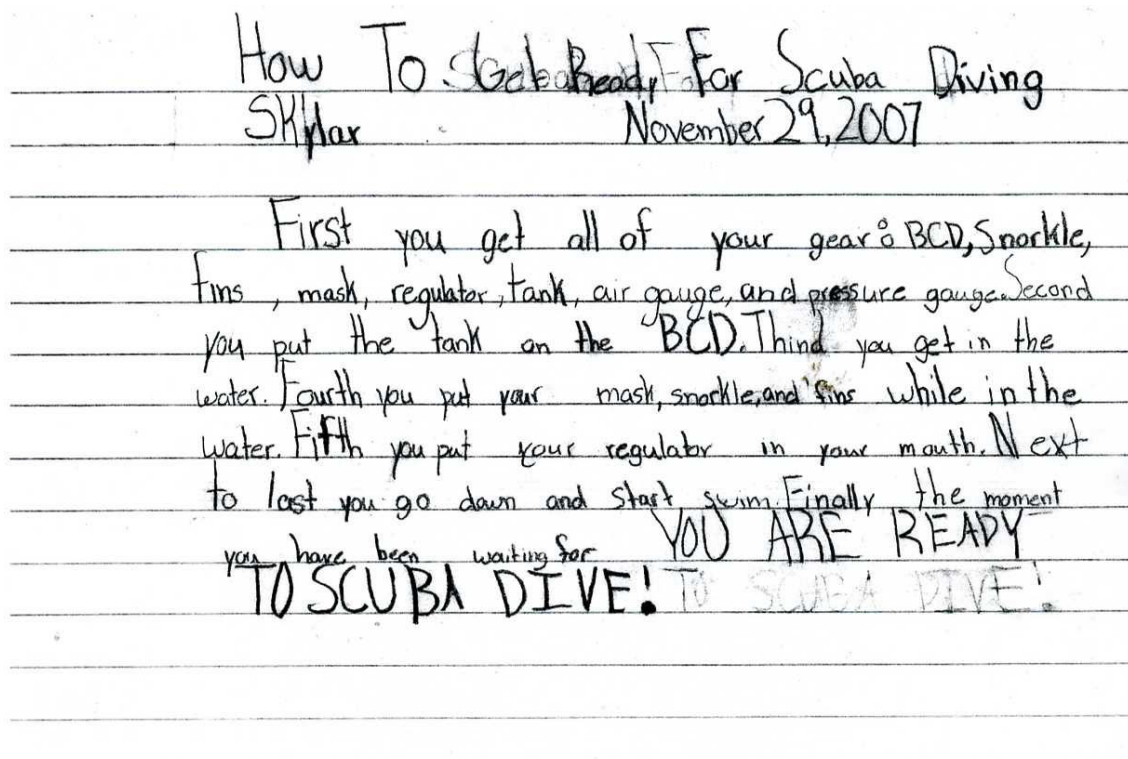 How To Get Ready For Scuba Diving
SKylar November 29, 2007
First you get all of your gear: BCD, Snorkle,
fins, mask, regulator, tank, air gauge, and pressure gauge. Second
you put the tank on the BCD. Third you get in the
water. Fourth you put your mask, snorkle, and fins while in the
water. Fifth you put your regulator in your mouth. Next
to last you go down and start swim. Finally the moment
you have been waiting for YOU ARE READY
TO SCUBA DIVE! TO SCUBA DIVE!